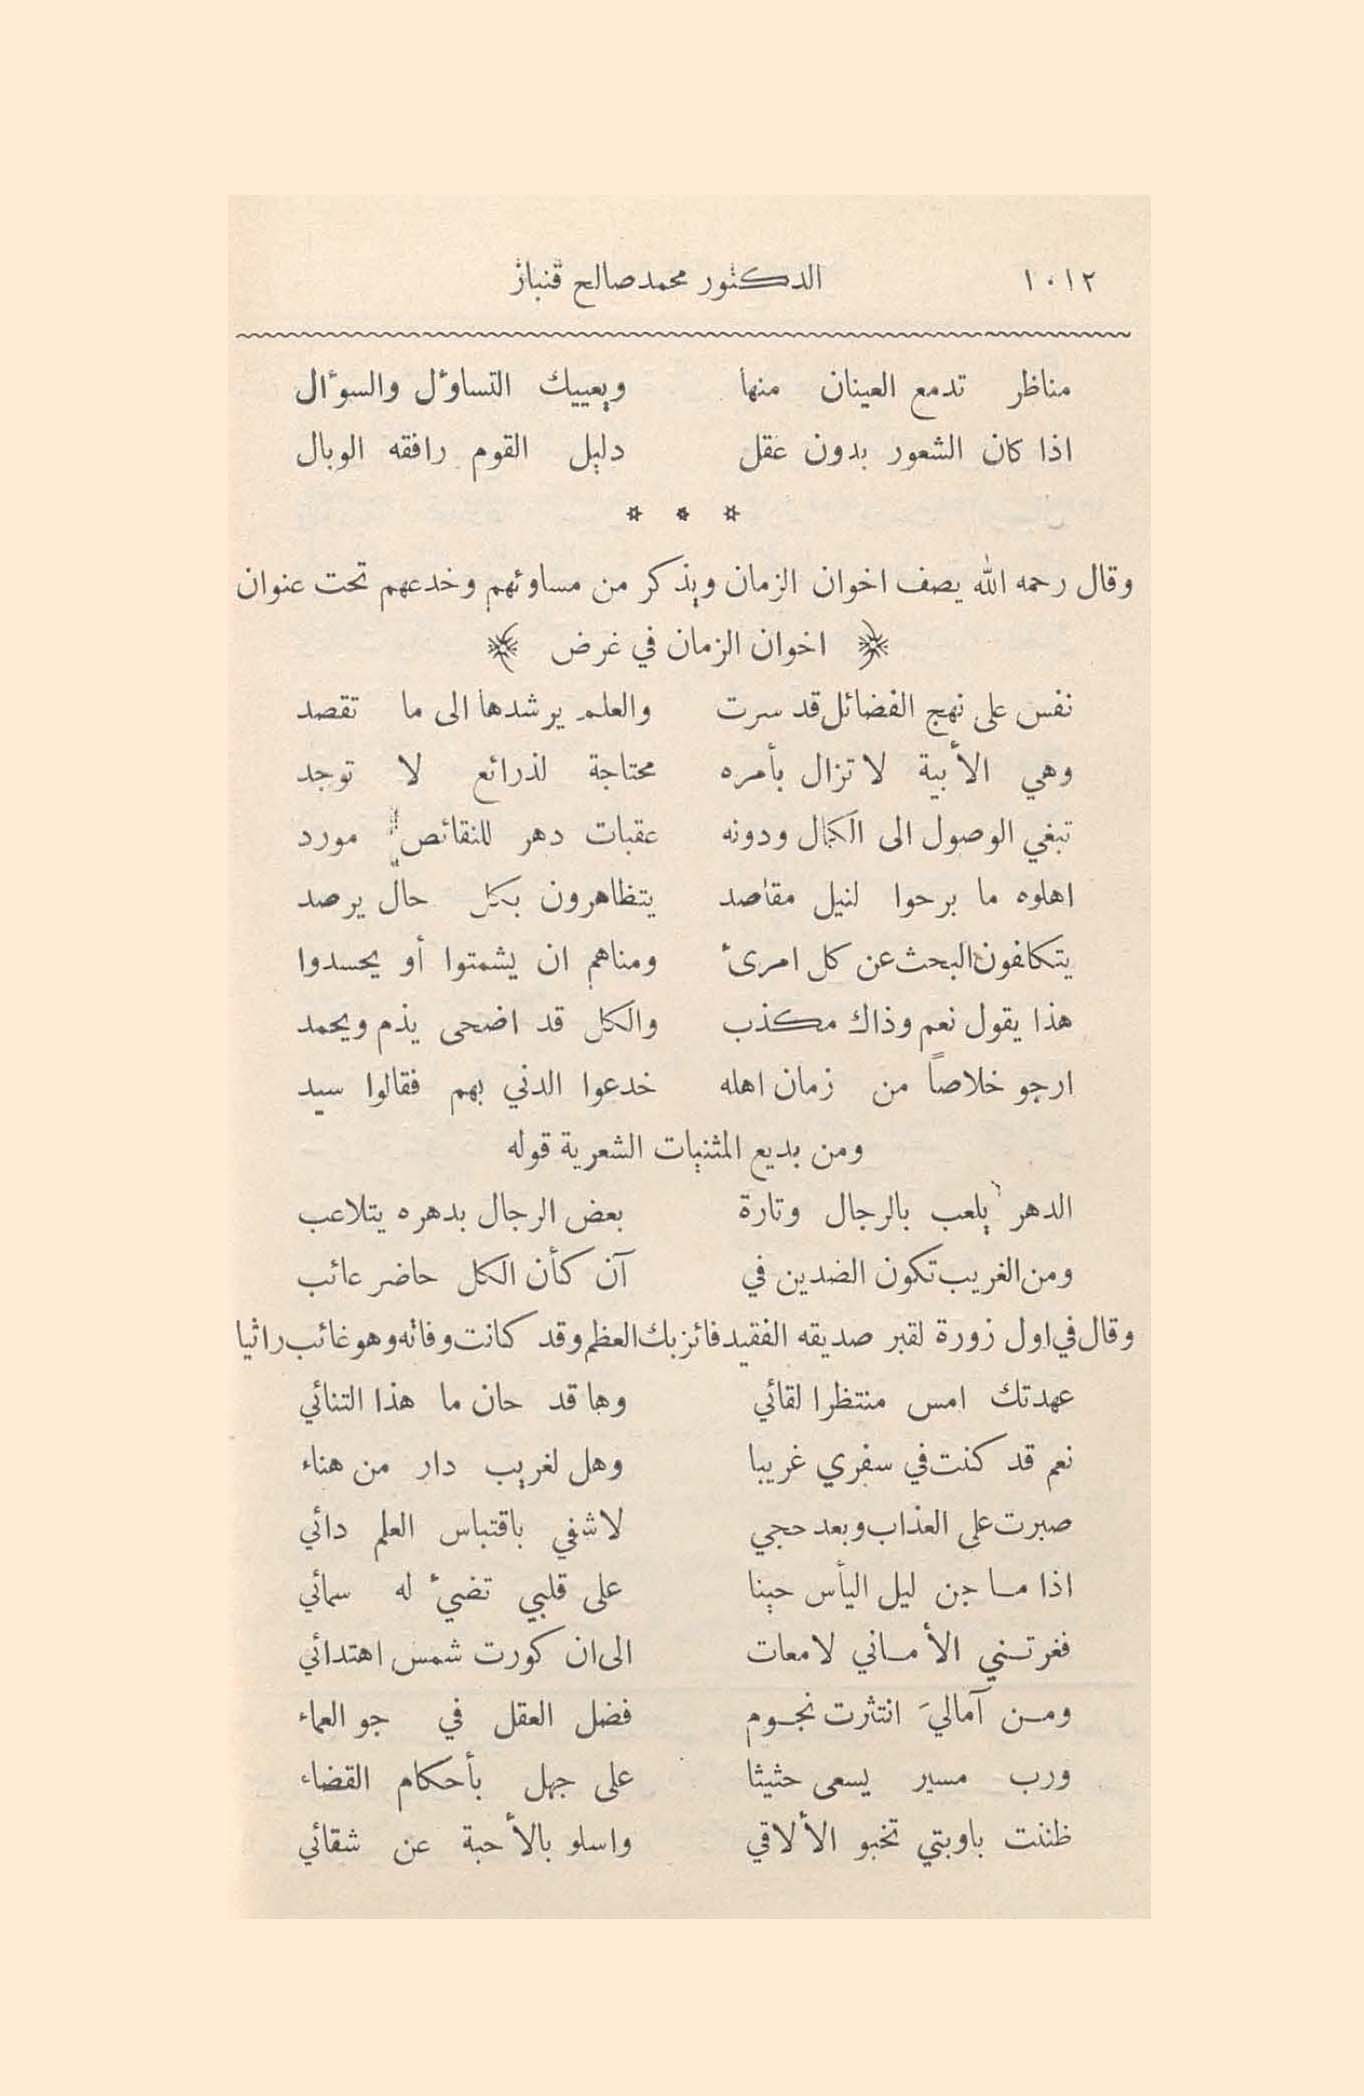 ١٠١٢ الدكتور محمد صالح قنباز
مناظر تدمع العينان منها ويعييك التساؤل والسؤال
اذا كان الشعور بدون عقل دليل القوم رافقه الوبال
* * *
وقال رحمه الله يصف اخوان الزمان ويذكر من مساوئهم وخدعهم تحت عنوان
﴿ اخوان الزمان في غرض ﴾
نفس على نهج الفضائل قد سرت والعلم يرشدها الى ما تقصد
وهي الأبية لا تزال بأمره محتاجة لذرائع لا توجد
تبغي الوصول الى الكمال ودونه عقبات دهر للنقائص مورد
اهلوه ما برحوا لنيل مقاصد يتظاهرون بكل حال يرصد
يتكافون البحث عن كل امرئ ومناهم ان يشمتوا أو يحسدوا
هذا يقول نعم وذاك مكذب والكل قد اضحى يذم ويحمد
ارجو خلاصاً من زمان اهله خدعوا الدني بهم فقالوا سيد
ومن بديع المثنيات الشعرية قوله
الدهر يلعب بالرجال وتارة بعض الرجال بدهره يتلاعب
ومن الغريب تكون الضدين في آن كأن الكل حاضر عائب
وقال في اول زورة لقبر صديقه الفقيد فائز بك العظم وقد كانت وفاته وهو غائب راثيا
عهدتك امس منتظرا لقائي وها قد حان ما هذا التنائي
نعم قد كنت في سفري غريبا وهل لغريب دار من هناء
صبرت على العذاب وبعد حجي لاشفي باقتباس العلم دائي
اذا ما جن ليل اليأس حينا على قلبي تضيء له سمائي
فغرتني الأماني لامعات الى ان كورت شمس اهتدائي
ومن آماليَ انتثرت نجوم فضل العقل في جو العماء
ورب مسير يسعى حثيثا على جهل بأحكام القضاء
ظننت باوبتي تخبو الألاقي واسلو بالأحبة عن شقائي